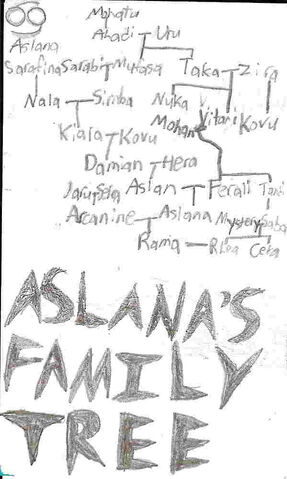 Mohatu
Aslana Ahadi Uru
Sarafina Sarabi Mufasa Taka Zira
Nala Simba Nuka Vitani Kovu
Mohan
Kiala Kovu
Damian Hera
Aslan Ferali
Arcanine Aslana Mystery Saba
Rama Rhea
ASLANA'S
FAMILY
TREE